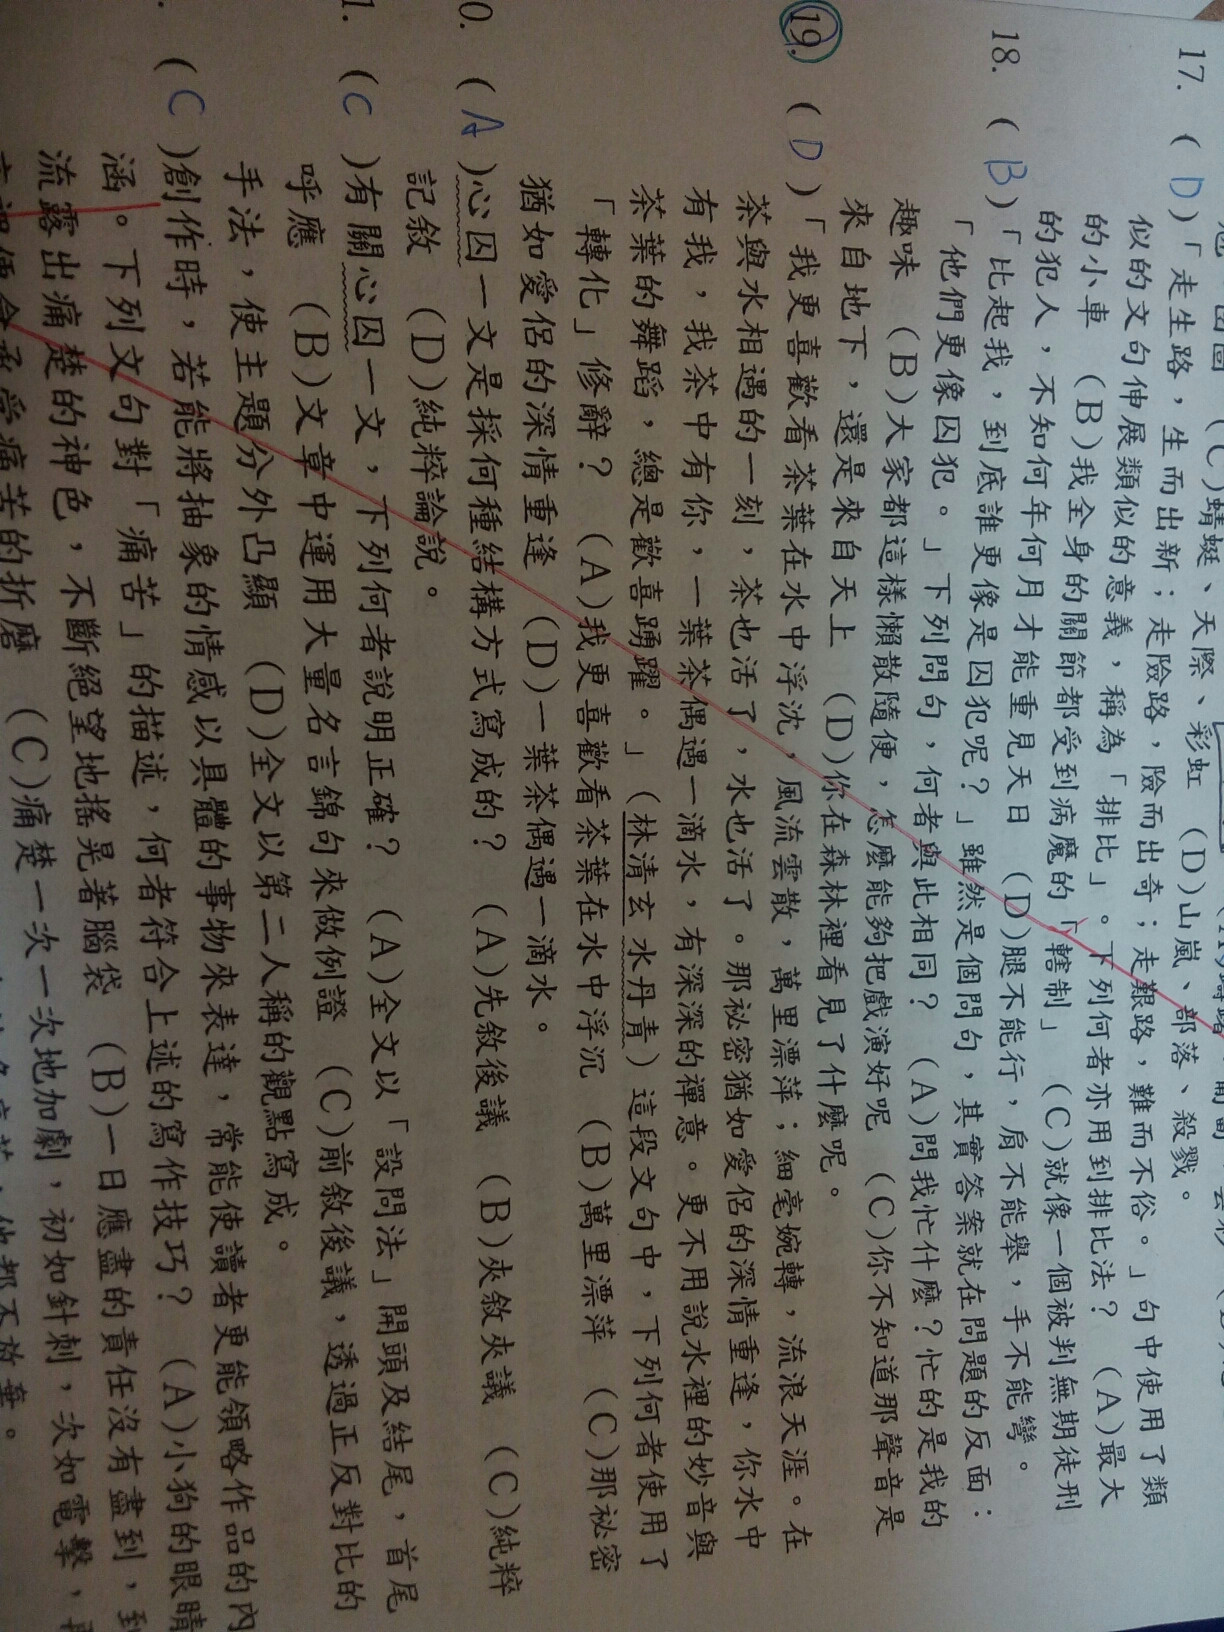 17. (D)「走生路，生而出新；走險路，險而出奇；走艱路，難而不俗。」句中使用了類
似的文句伸展類似的意義，稱為「排比」。下列何者亦用到排比法？ (A)最大
的小車 (B)我全身的關節都受到病魔的「轄制」 (C)就像一個被判無期徒刑
的犯人，不知何年何月才能重見天日 (D)腿不能行，肩不能舉，手不能彎。
18. (B)「比起我，到底誰更像是囚犯呢？」雖然是個問句，其實答案就在問題的反面：
「他們更像囚犯。」下列問句，何者與此相同？ (A)問我忙什麼？忙的是我的
趣味 (B)大家都這樣懶散隨便，怎麼能夠把戲演好呢 (C)你不知道那聲音是
來自地下，還是來自天上 (D)你在森林裡看見了什麼呢。
19. (D)「我更喜歡看茶葉在水中浮沈，風流雲散，萬里漂萍；細毫婉轉，流浪天涯。在
茶與水相遇的一刻，茶也活了，水也活了。那祕密猶如愛侶的深情重逢，你水中
有我，我茶中有你，一葉茶偶遇一滴水，有深深的禪意。更不用說水裡的妙音與
茶葉的舞蹈，總是歡喜踴躍。」（林清玄 水丹青）這段文句中，下列何者使用了
「轉化」修辭？ (A)我更喜歡看茶葉在水中浮沉 (B)萬里漂萍 (C)那祕密
猶如愛侶的深情重逢 (D)一葉茶偶遇一滴水。
0. (A)心囚一文是採何種結構方式寫成的？ (A)先敘後議 (B)夾敘夾議 (C)純粹
記敘 (D)純粹論說。
1. (C)有關心囚一文，下列何者說明正確？ (A)全文以「設問法」開頭及結尾，首尾
呼應 (B)文章中運用大量名言錦句來做例證 (C)前敘後議，透過正反對比的
手法，使主題分外凸顯 (D)全文以第二人稱的觀點寫成。
. (C)創作時，若能將抽象的情感以具體的事物來表達，常能使讀者更能領略作品的內
涵。下列文句對「痛苦」的描述，何者符合上述的寫作技巧？ (A)小狗的眼睛
流露出痛楚的神色，不斷絕望地搖晃著腦袋 (B)一日應盡的責任沒有盡到，到
便會承受痛苦的折磨 (C)痛楚一次一次地加劇，初如針刺，次如電擊，